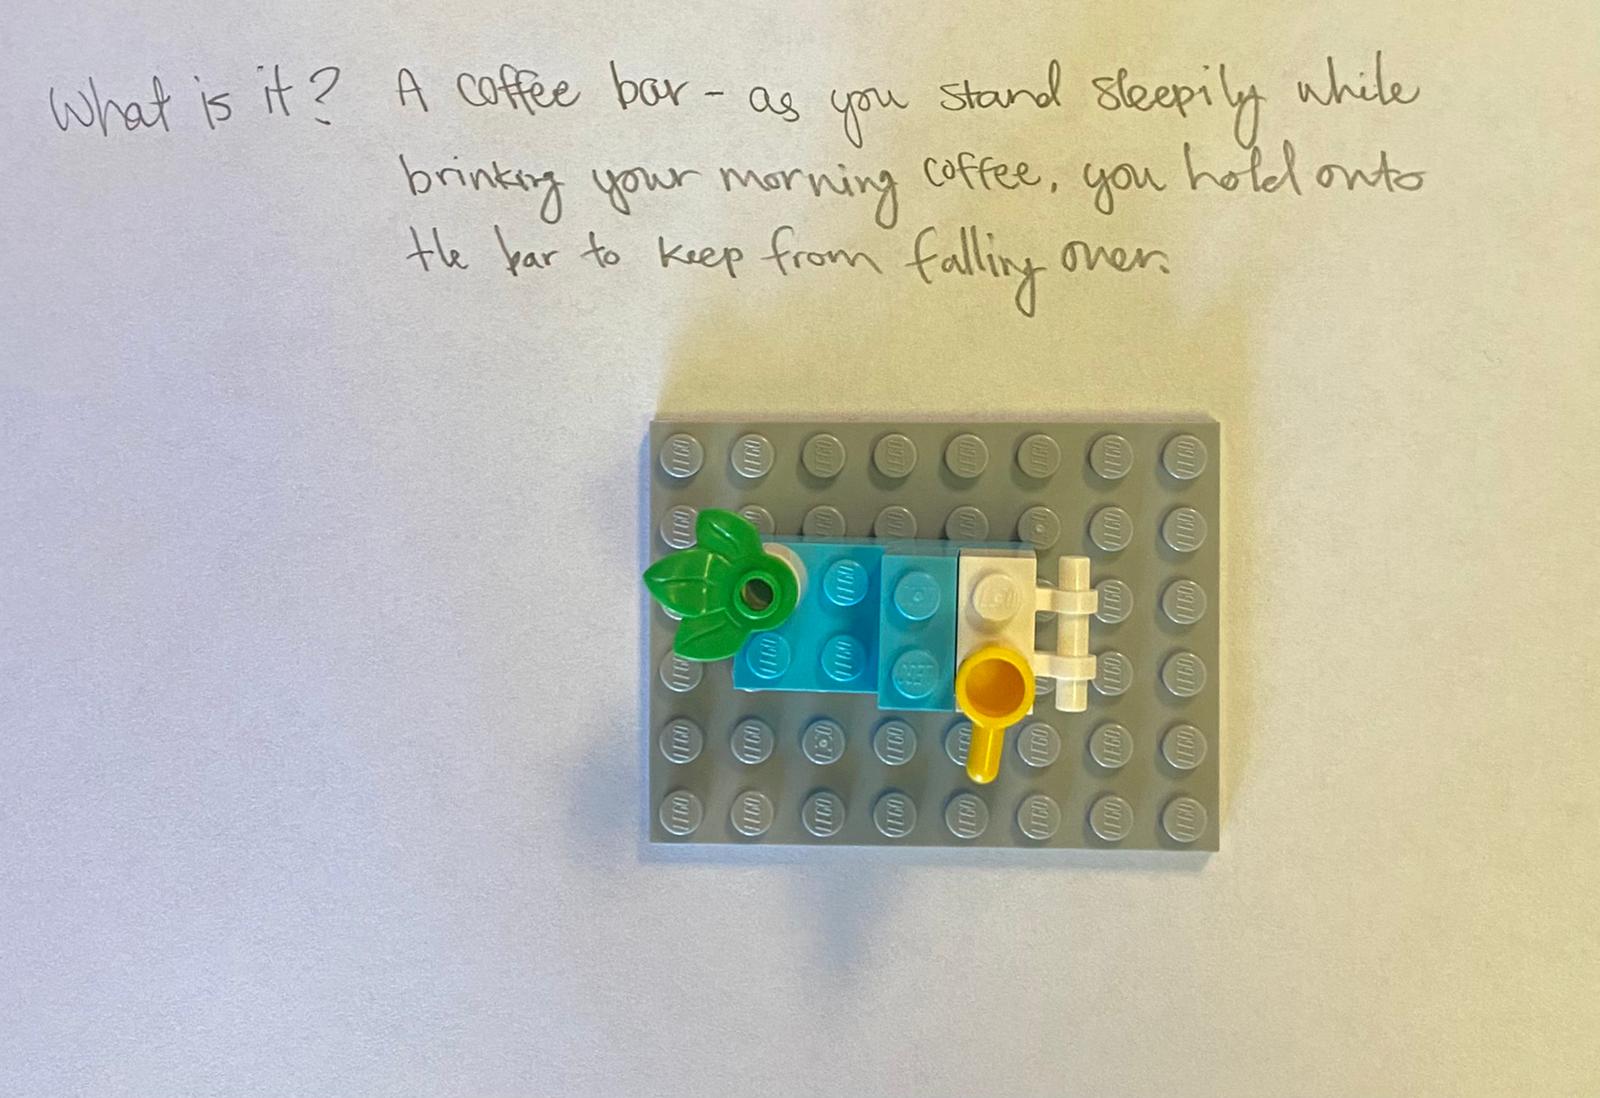 What is it? A coffee bar - as you stand sleepily while
brinking your morning coffee, you hold onto
the bar to keep from falling over.
LEGO